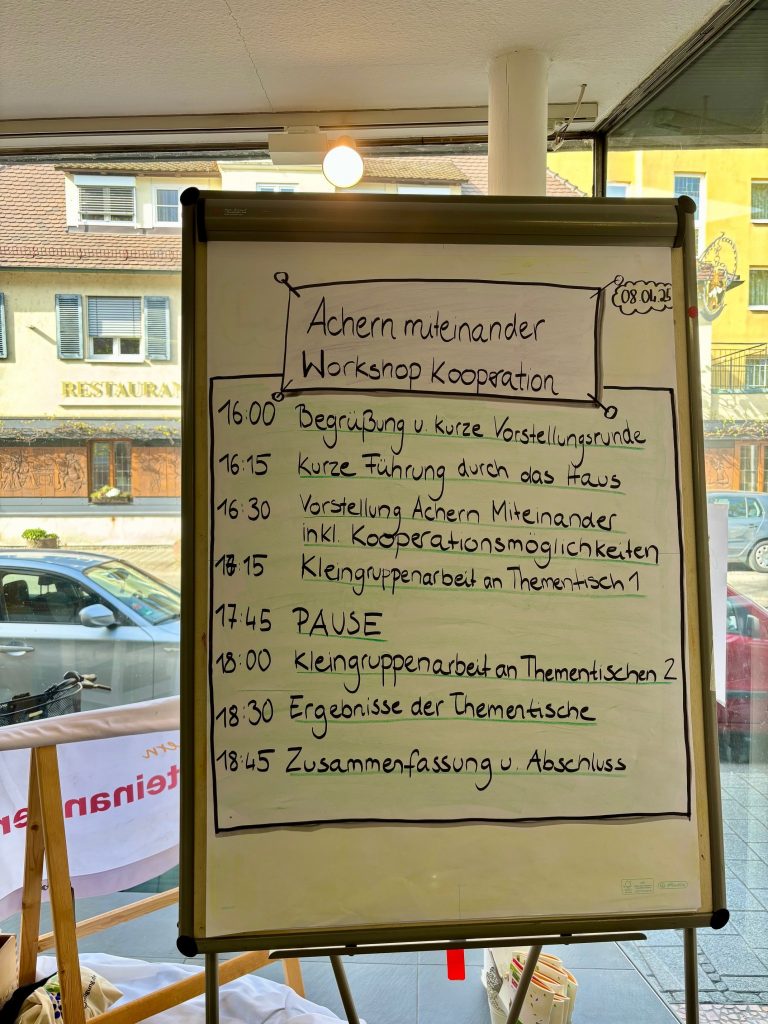 08.04.25
Achern miteinander
Workshop Kooperation
16:00 Begrüßung u. kurze Vorstellungsrunde
16:15 kurze Führung durch das Haus
16:30 Vorstellung Achern Miteinander
inkl. Kooperationsmöglichkeiten
17:15 Kleingruppenarbeit an Thementisch 1
17:45 PAUSE
18:00 Kleingruppenarbeit an Thementischen 2
18:30 Ergebnisse der Thementische
18:45 Zusammenfassung u. Abschluss
RESTAURAN
ern
teinander